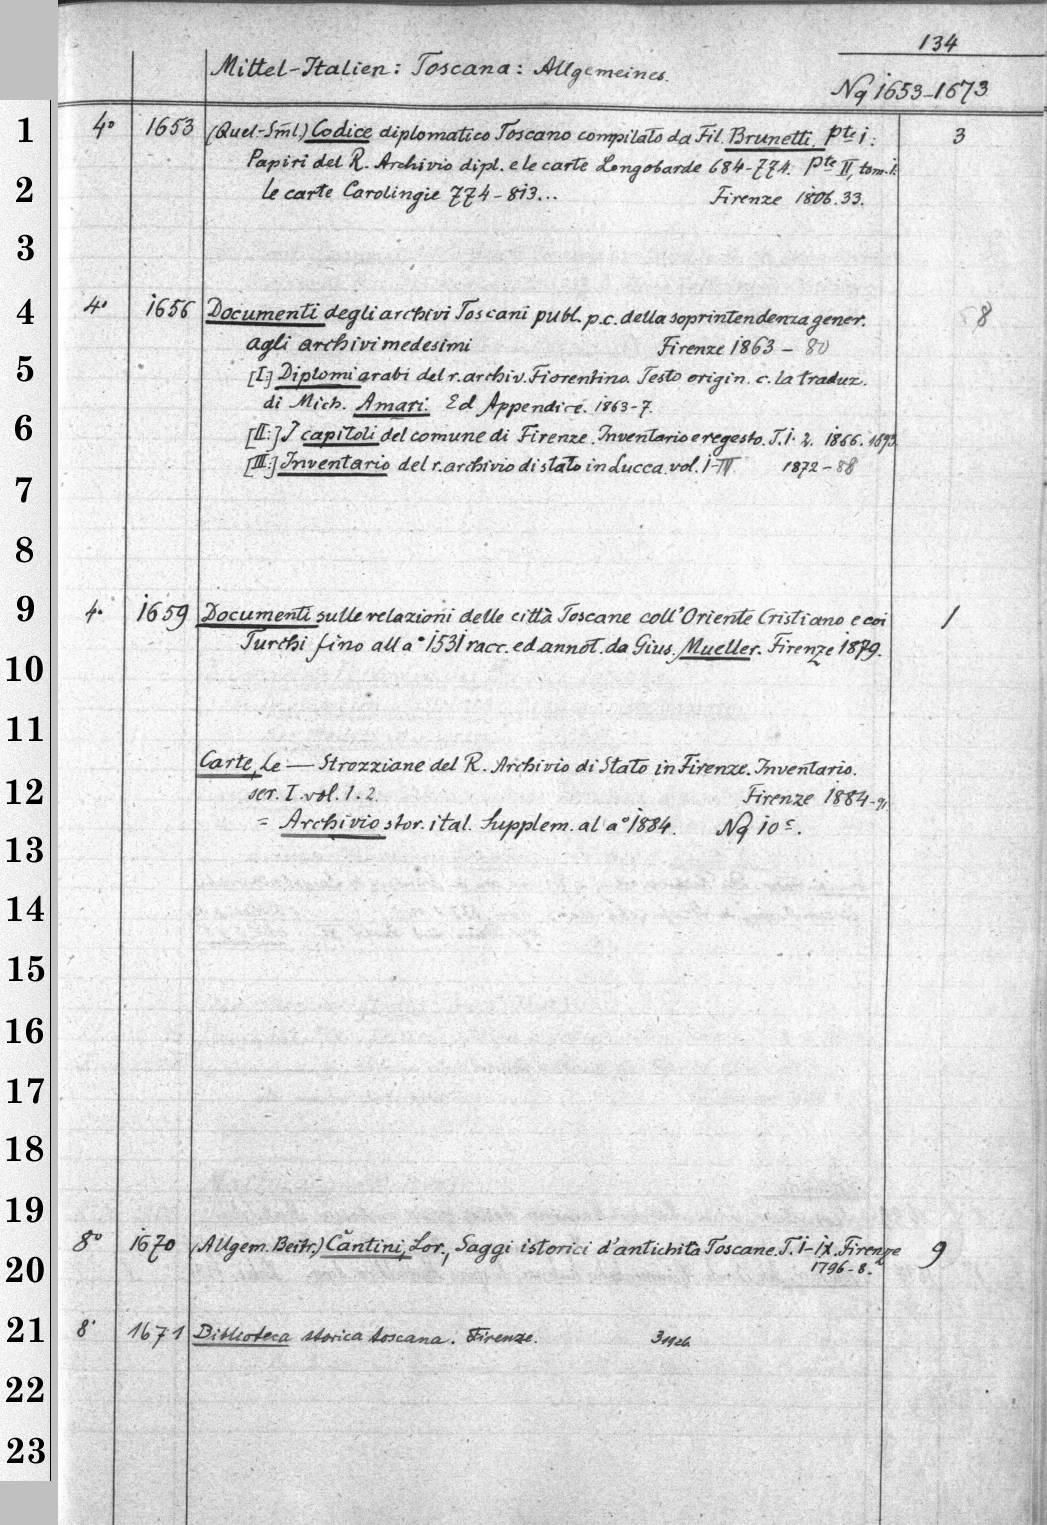 134
Mittel-Italien: Toscana: Allgemeines.
Nq 1653-1673
1 4° 1653 (Quel-Sml.) Codice diplomatico Toscano compilato da Fil. Brunetti. pte 1: 3
Papiri del R. Archivio dipl. e le carte Longobarde 684-774. pte II, tom. 1:
2 le carte Carolingie 774-813... Firenze 1806.33.
3
4 4° 1656 Documenti degli archivi Toscani publ. p.c. della soprintendenza gener. 8
agli archivi medesimi Firenze 1863 - 80
5 [I:] Diplomi arabi del r. archiv. Fiorentino. Testo origin. c. la traduz.
di Mich. Amari. Ed Appendice. 1863-7.
6 [II:] I capitoli del comune di Firenze. Inventario e regesto. T. 1. 2. 1866. 1893.
[III:] Inventario del r. archivio di stato in Lucca. vol. I-IV 1872-88
7
8
9 4° 1659 Documenti sulle relazioni delle città Toscane coll'Oriente Cristiano e coi 1
10 Turchi fino all a° 1531 racc. ed annot. da Gius. Mueller. Firenze 1879.
11
Carte, Le — Strozziane del R. Archivio di Stato in Firenze. Inventario.
12 ser. I. vol. 1. 2. Firenze 1884-91
= Archivio stor. ital. Supplem. al a° 1884. Nq 10c.
13
14
15
16
17
18
19
8° 1670 (Allgem. Beitr.) Cantini, Lor., Saggi istorici d'antichità Toscane. T. I-IX. Firenze 9
20 1796-8.
21 8° 1671 Biblioteca storica toscana. Firenze.
22
23